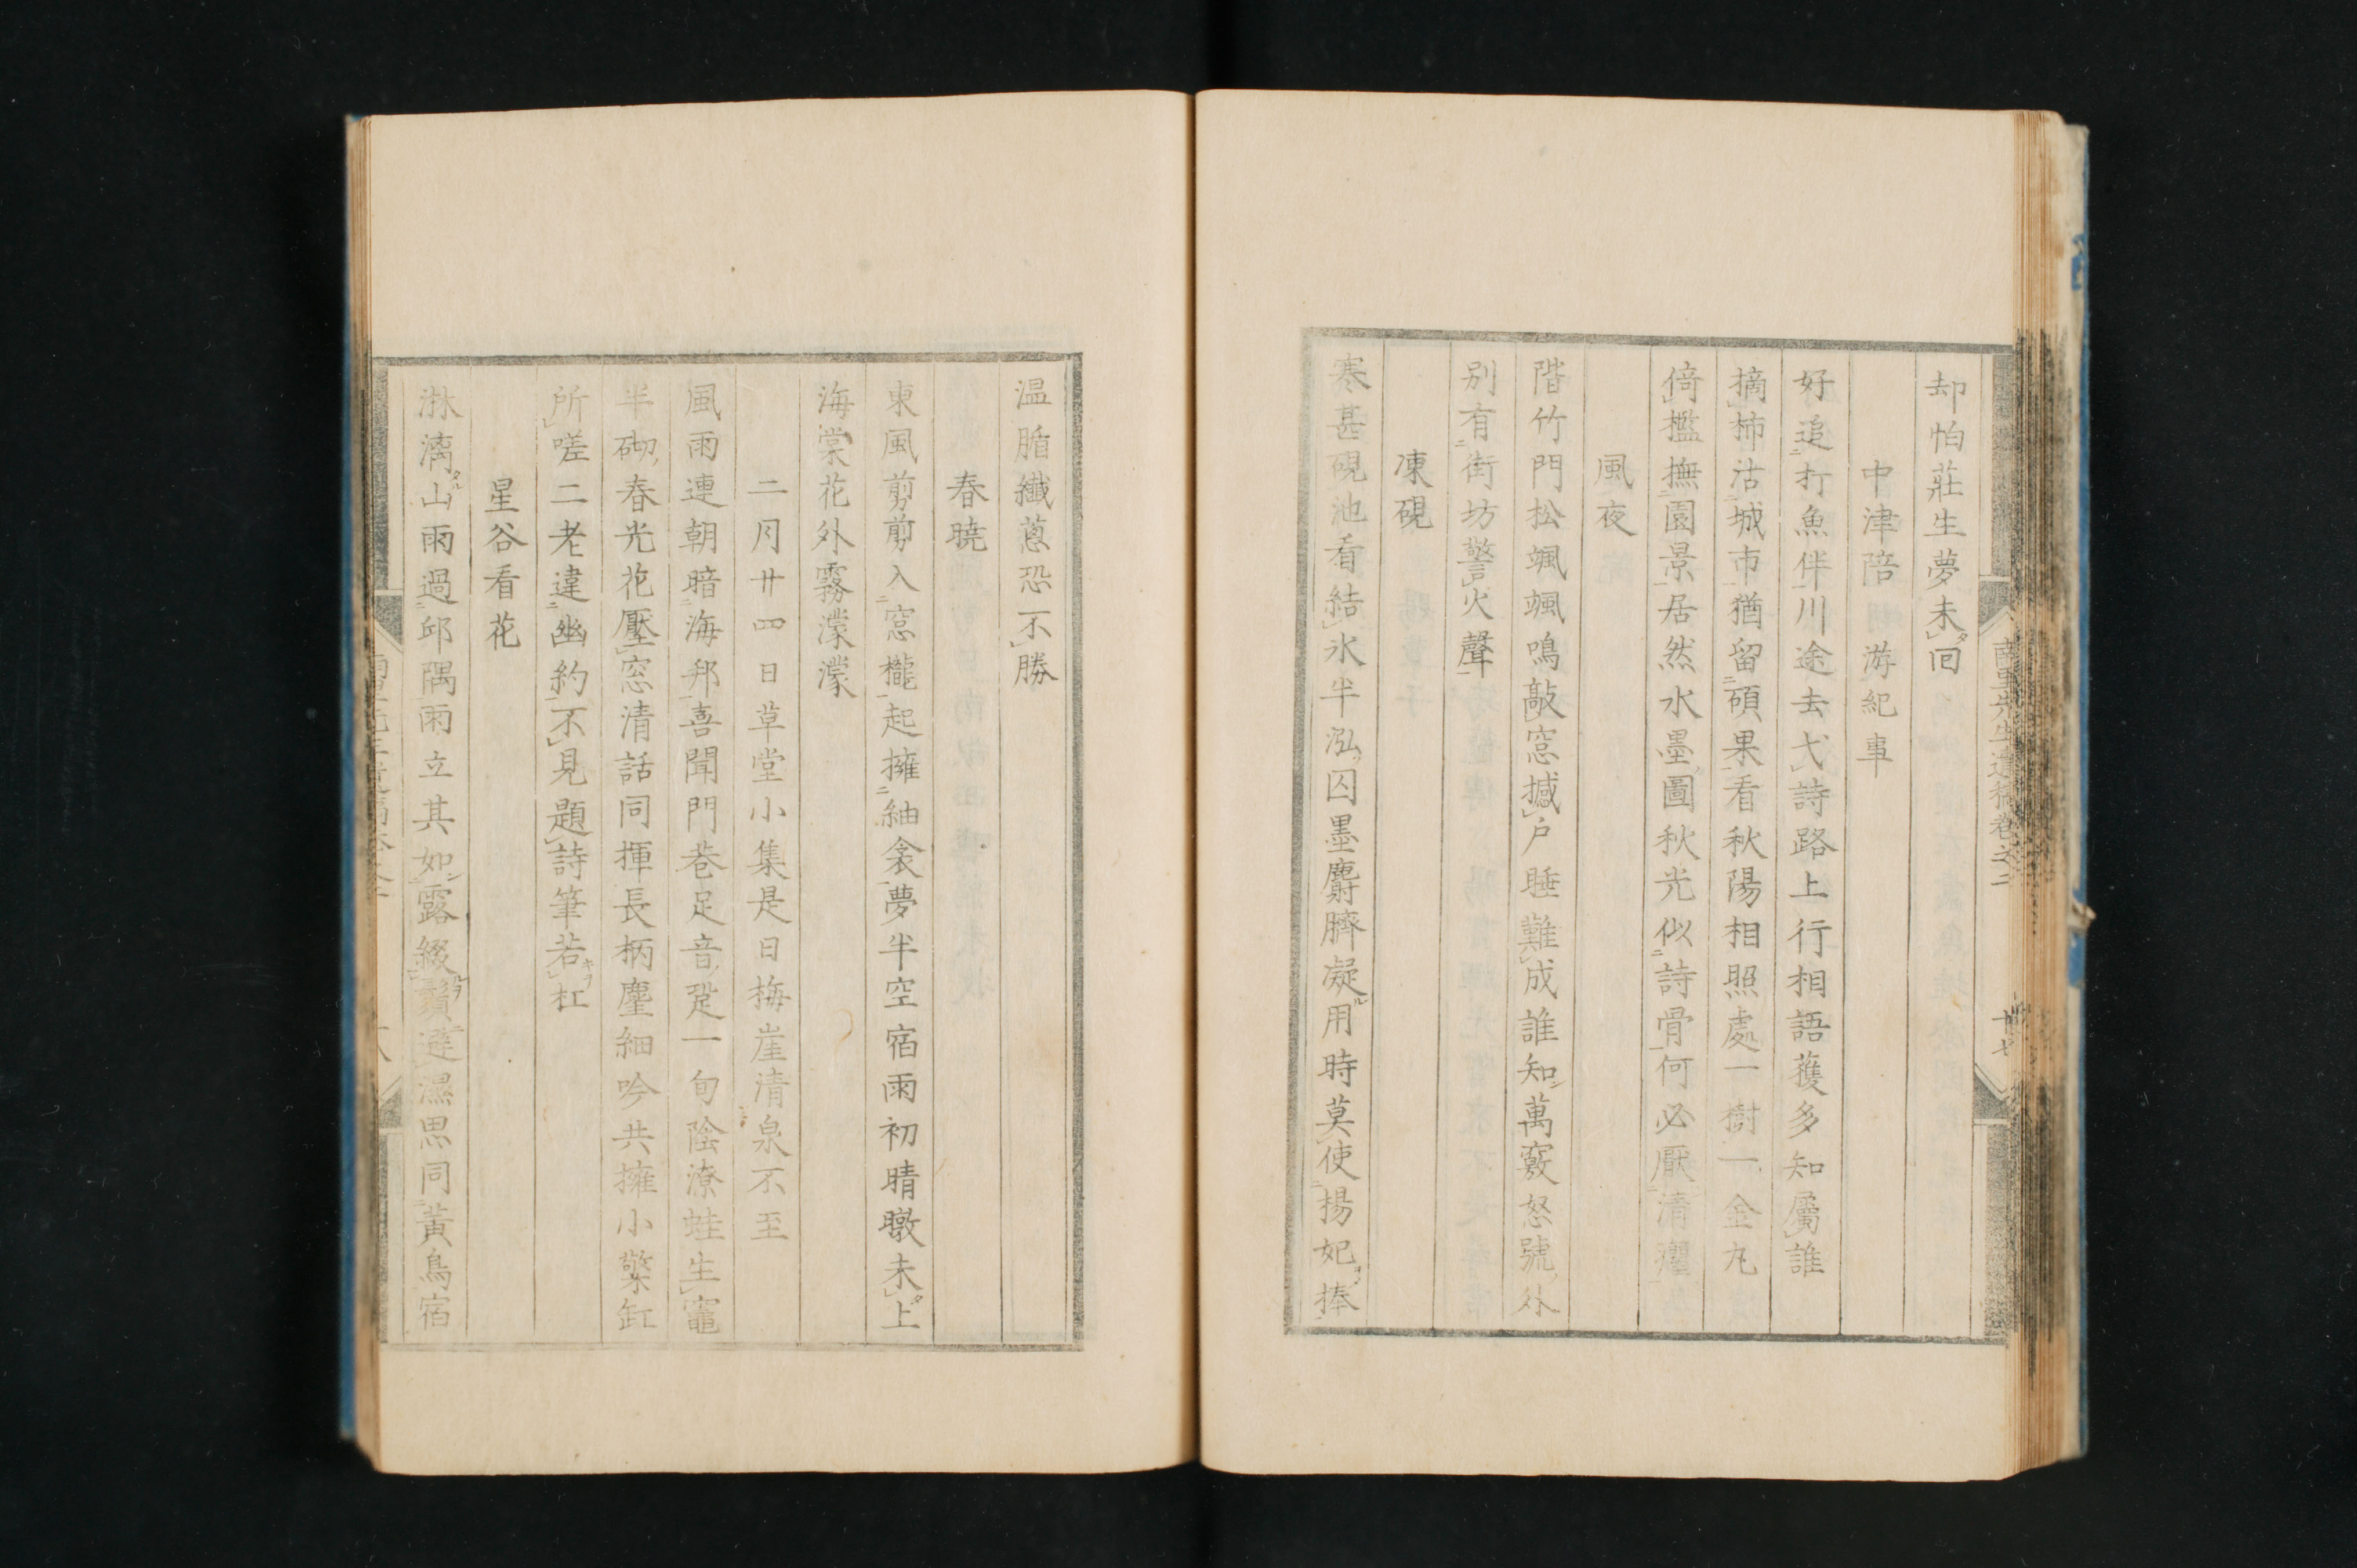 却怕莊生夢未回
中津陪游紀事
好追打魚伴川途去弋詩路上行相語獲多知屬誰
摘柿沽城市猶留碩果看秋陽相照處一樹一金丸
倚檻撫園景居然水墨圖秋光似詩骨何必厭清癯
風夜
階竹門松颯颯鳴敲窓撼戸睡難成誰知萬竅怒號外
別有街坊警火聲
凍硯
寒甚硯池看結氷半泓囚墨麝臍凝用時莫使楊妃捧
南里先生遺稿卷之二
廿七
温腯纖蔥恐不勝
春曉
東風剪剪入窓櫳起擁紬衾夢半空宿雨初晴暾未上
海棠花外霧濛濛
二月廿四日草堂小集是日梅崖清泉不至
風雨連朝暗海邦喜聞門巷足音跫一旬陰潦蛙生竈
半砌春光花壓窓清話同揮長柄麈細吟共擁小檠缸
所嗟二老違幽約不見題詩筆若杠
星谷看花
淋漓山雨過邱隅雨立其如露綴鬚避濕思同黃鳥宿